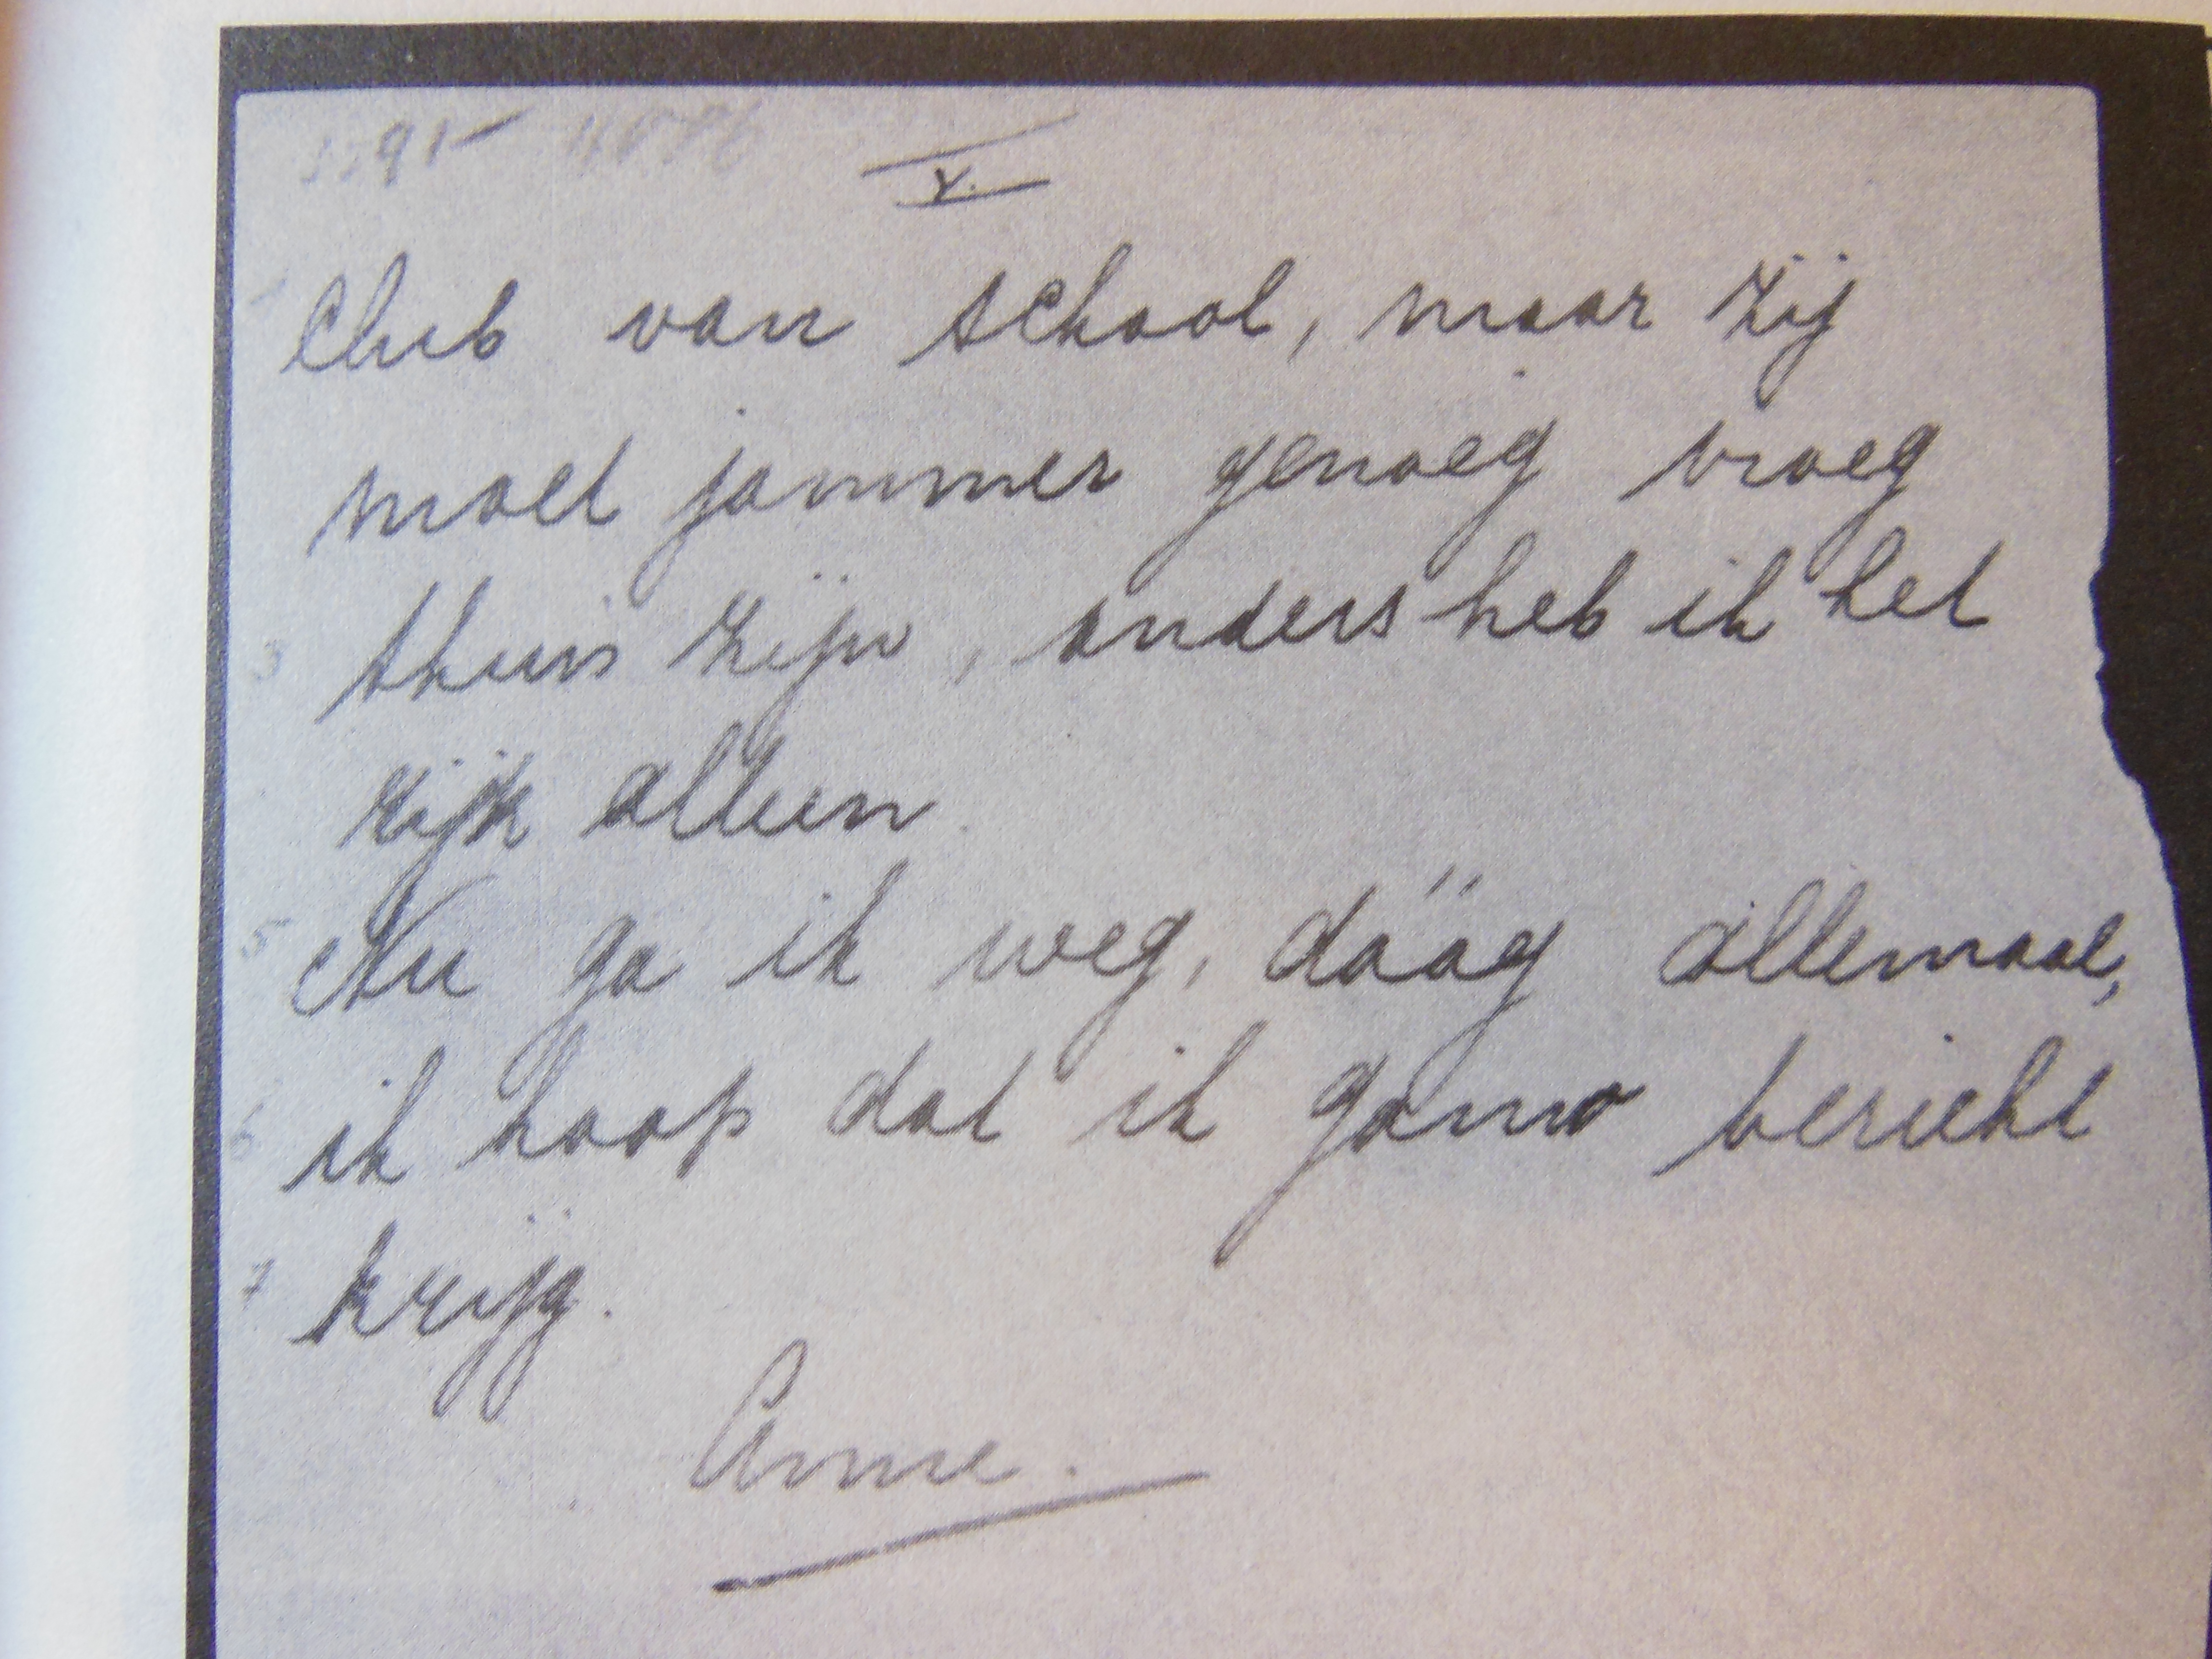 V.
Club van school, maar zij
moet jammer genoeg vroeg
3 thuis zijn, anders heb ik het
rijk alleen.
5 Nu ga ik weg, dääg allemaal,
6 ik hoop dat ik gauw bericht
7 krijg.
Anne.